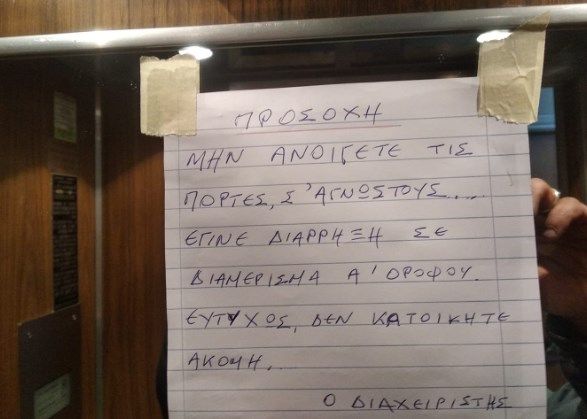 ΠΡΟΣΟΧΗ
ΜΗΝ ΑΝΟΙΓΕΤΕ ΤΙΣ
ΠΟΡΤΕΣ, Σ'ΑΓΝΩΣΤΟΥΣ....
ΕΓΙΝΕ ΔΙΑΡΡΗΞΗ ΣΕ
ΔΙΑΜΕΡΙΣΜΑ Α' ΟΡΟΦΟΥ.
ΕΥΤΥΧΩΣ, ΔΕΝ ΚΑΤΟΙΚΗΤΕ
ΑΚΟΜΗ..
Ο ΔΙΑΧΕΙΡΙΣΤΗΣ